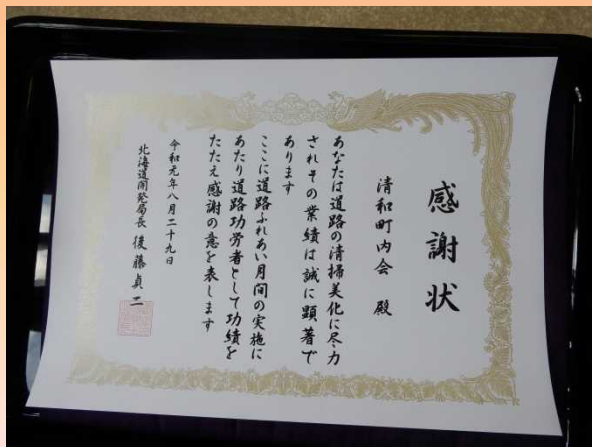 感謝状
清和町内会 殿
あなたは道路の清掃美化に尽力
されその業績は誠に顕著で
あります
ここに道路ふれあい月間の実施に
あたり道路功労者として功績を
たたえ感謝の意を表します
令和元年八月二十九日
北海道開発局長 後藤貞二